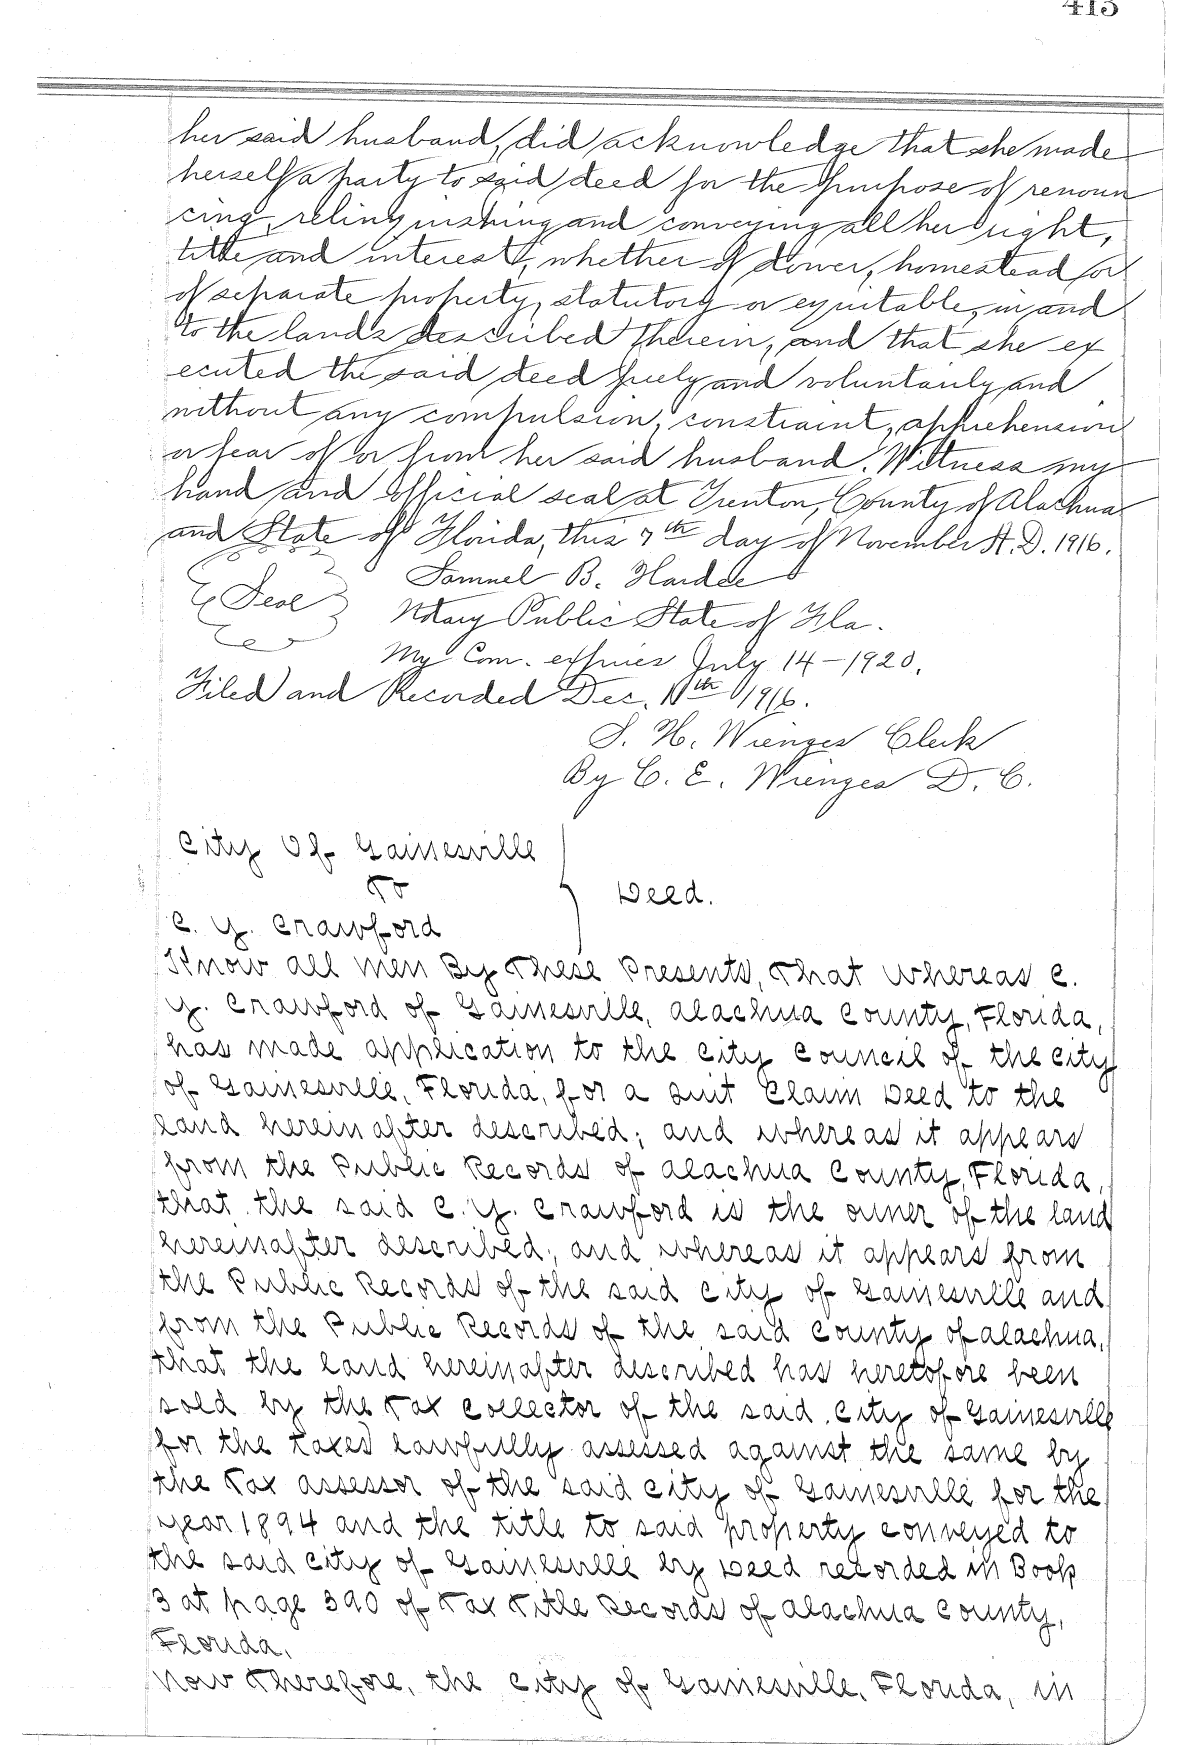 413
her said husband, did acknowledge that she made
herself a party to said deed for the purpose of renoun
cing, relinquishing and conveying all her right,
title and interest, whether of dower, homestead or
of separate property, statutory or equitable, in and
to the lands described therein, and that she ex
ecuted the said deed freely and voluntarily and
without any compulsion, constraint, apprehension
or fear of or from her said husband. Witness my
hand and official seal at Trenton, County of Alachua
and State of Florida, this 7th day of November A.D. 1916.
Samuel B. Hardee
Seal Notary Public State of Fla.
My Com. expires July 14-1920.
Filed and Recorded Dec. 11th 1916.
S. H. Wienges Clerk
By C. E. Wienges D. C.
City Of Gainesville
To Deed.
C. Y. Crawford
Know all men By These Presents, That whereas C.
Y. Crawford of Gainesville, Alachua County, Florida,
has made application to the City Council of the City
of Gainesville, Florida, for a Quit Claim Deed to the
land hereinafter described; and whereas it appears
from the Public Records of Alachua County, Florida,
that the said C. Y. Crawford is the owner of the land
hereinafter described; and whereas it appears from
the Public Records of the said City of Gainesville and
from the Public Records of the said County of Alachua,
that the land hereinafter described has heretofore been
sold by the Tax Collector of the said City of Gainesville
for the taxes lawfully assessed against the same by
the Tax Assessor of the said City of Gainesville for the
year 1894 and the title to said property conveyed to
the said City of Gainesville by Deed recorded in Book
3 at page 390 of Tax Title Records of Alachua County,
Florida.
Now Therefore, the City of Gainesville, Florida, in